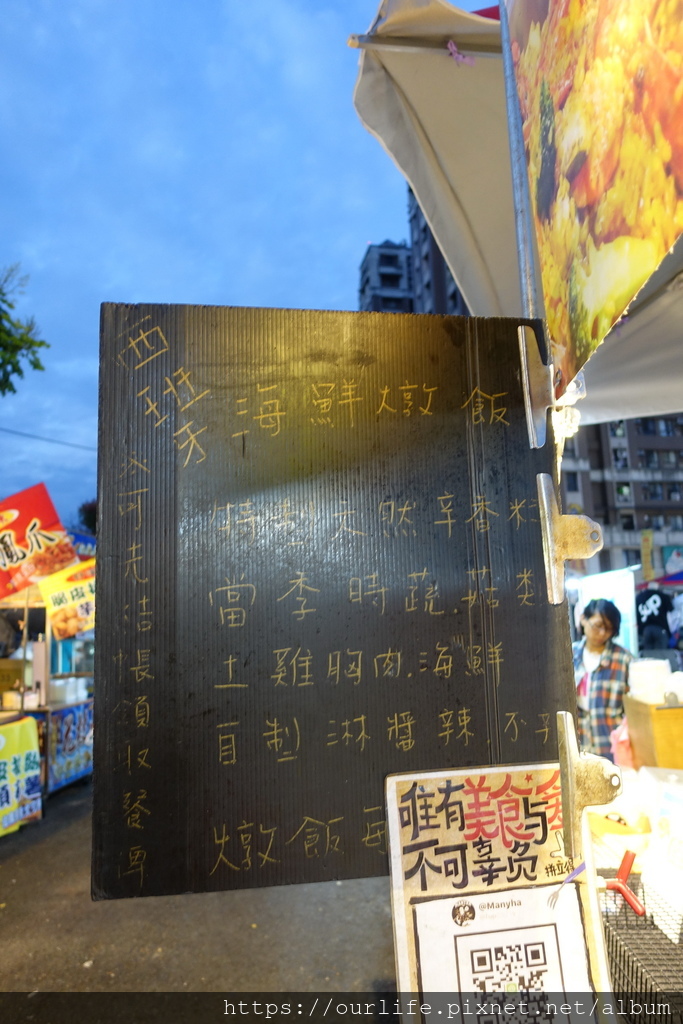 西班牙海鮮燉飯
特製天然辛香料
當季時蔬.菇類
土雞胸肉.海鮮
自制淋醬辣.不辛
燉飯
可先結帳領取餐
唯有美食与
不可辜负
@Manyha
鳳爪
https://ourlife.pixnet.net/album